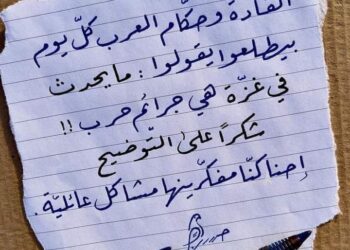 القادة وحكّام العرب كلّ يوم
بيطلعوا يقولوا : ما يحدث
في غزّة هي جرائم حرب !!
شكراً على التّوضيح
إحنا كنّا مفكّرينها مشاكل عائليّة.